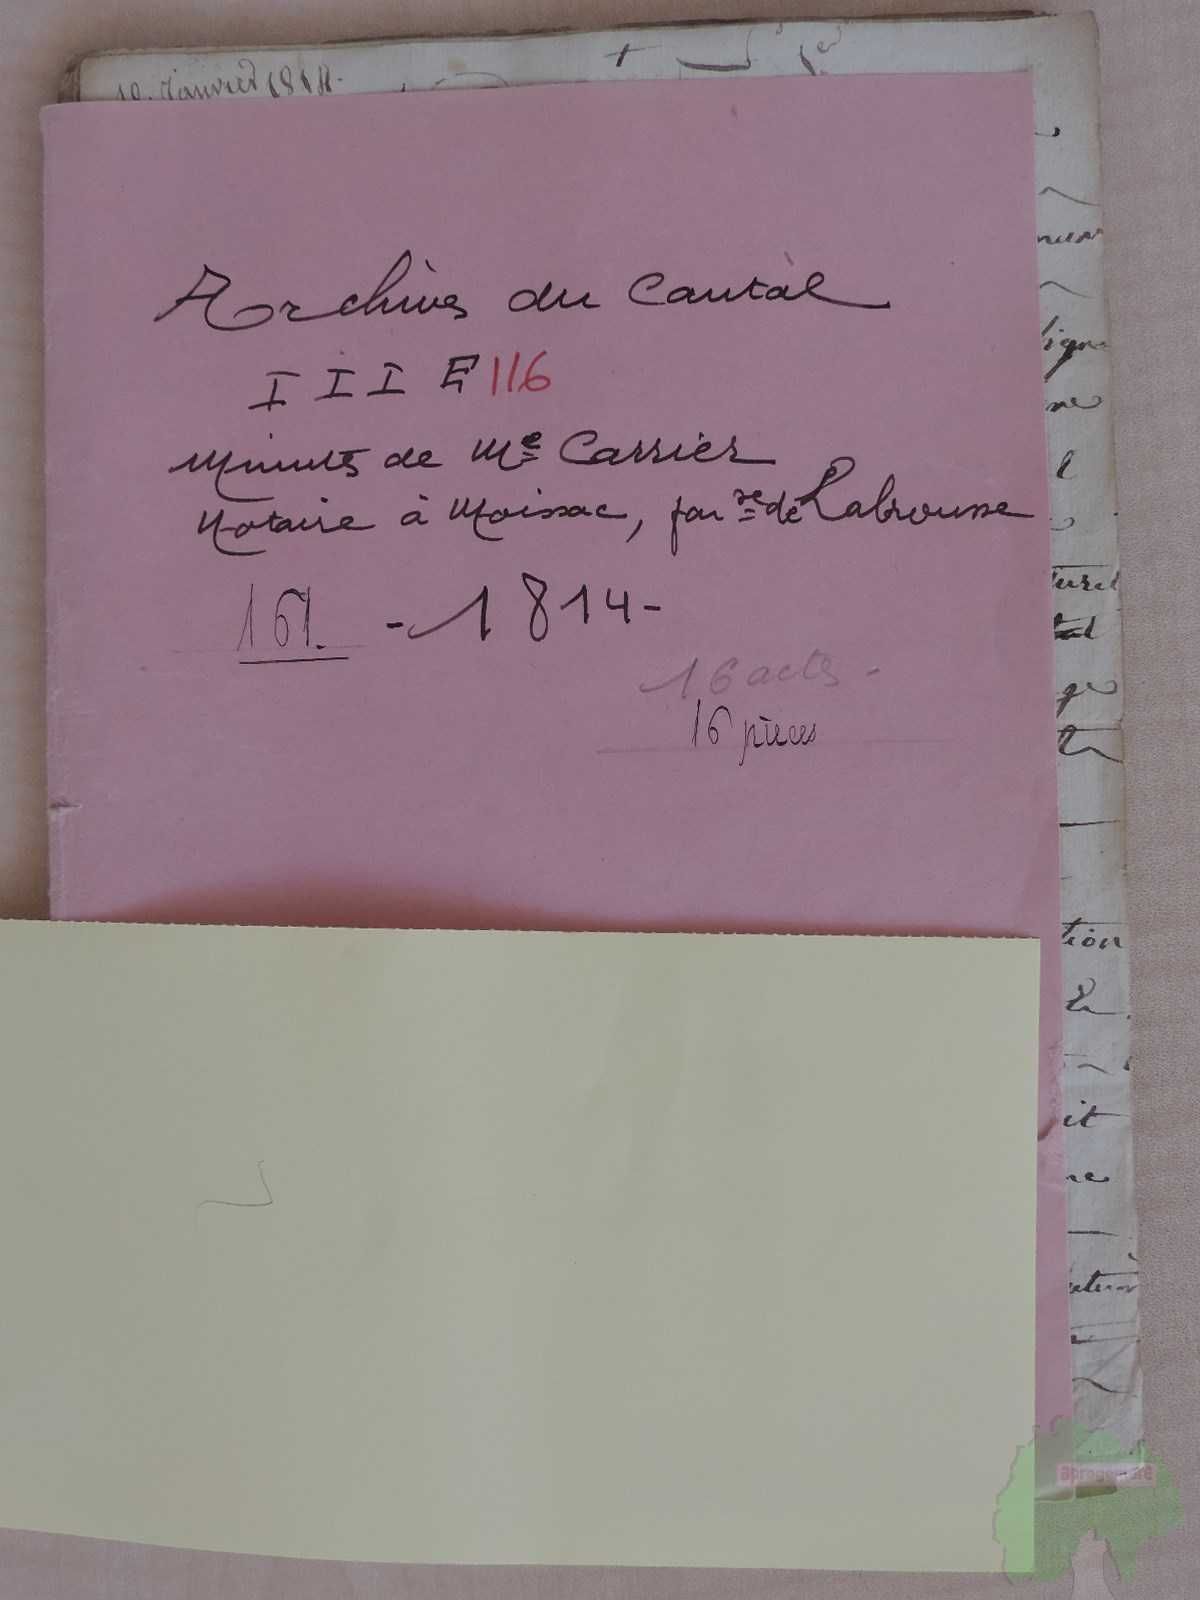 10. Janvier 1814.
Archives du Cantal
III E 116
Minutes de Me Carrier
Notaire à Moissac, par sse de Labrousse
161. - 1814 -
16 actes -
16 pièces
ligne
ne
tion
&
it
ne
aprogemere